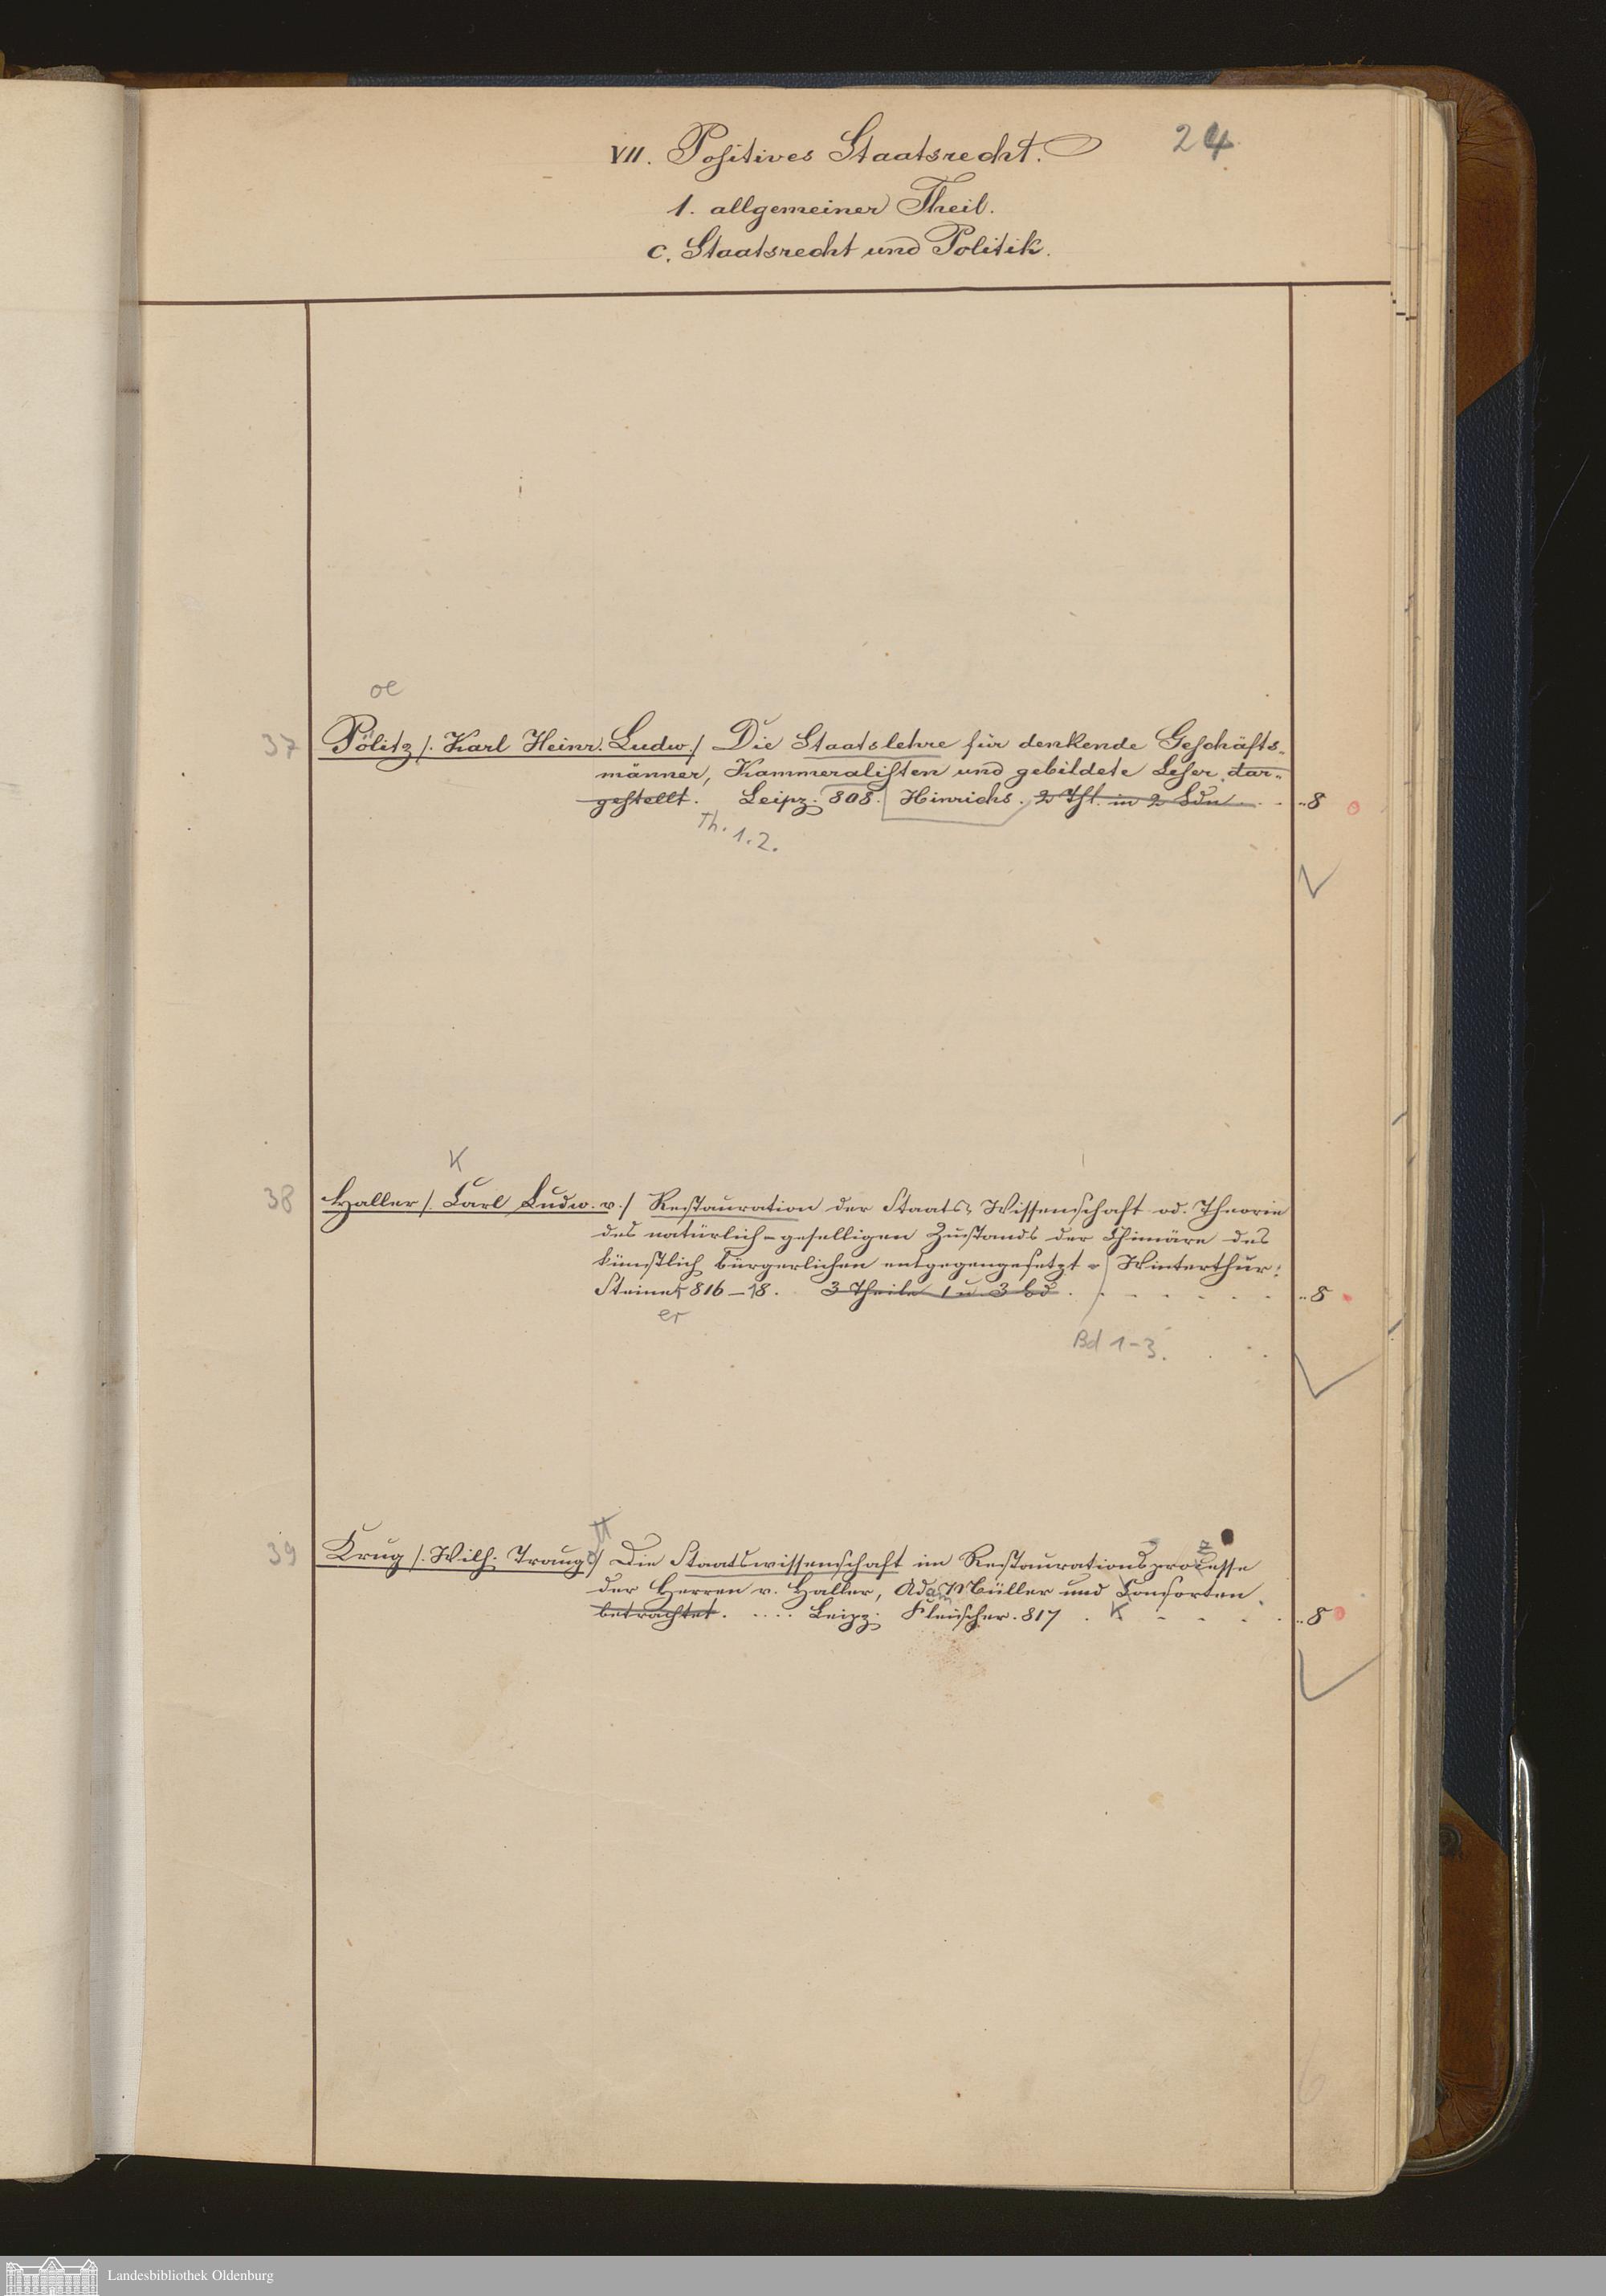 24
VII. Positives Staatsrecht.
1. allgemeiner Theil.
c. Staatsrecht und Politik.
oe
37 Pölitz /. Karl Heinr. Ludw./ Die Staatslehre für denkende Geschäfts-
männer, Kammeralisten und gebildete Leser dar-
gestellt. Leipz. 808. Hinrichs. 2 Thl. in 2 Bdn ..8
Th. 1.2.
K
38 Haller /. Carl Ludw. v./ Restauration der Staats-Wissenschaft od. Theorie
des natürlich-geselligen Zustands der Chimäre des
künstlich bürgerlichen entgegengesetzt Winterthur:
Steiner 816-18. 3 Theile 1 u. 3 bd. ..8
er
Bd 1-3.
39 Krug /. Wilh. Traug./ Die Staatswissenschaft im Restaurationsprocesse
z
der Herren v. Haller, Adam Müller und Consorten
betrachtet. .... Leipz. Fleischer. 817 . K ..8
Landesbibliothek Oldenburg